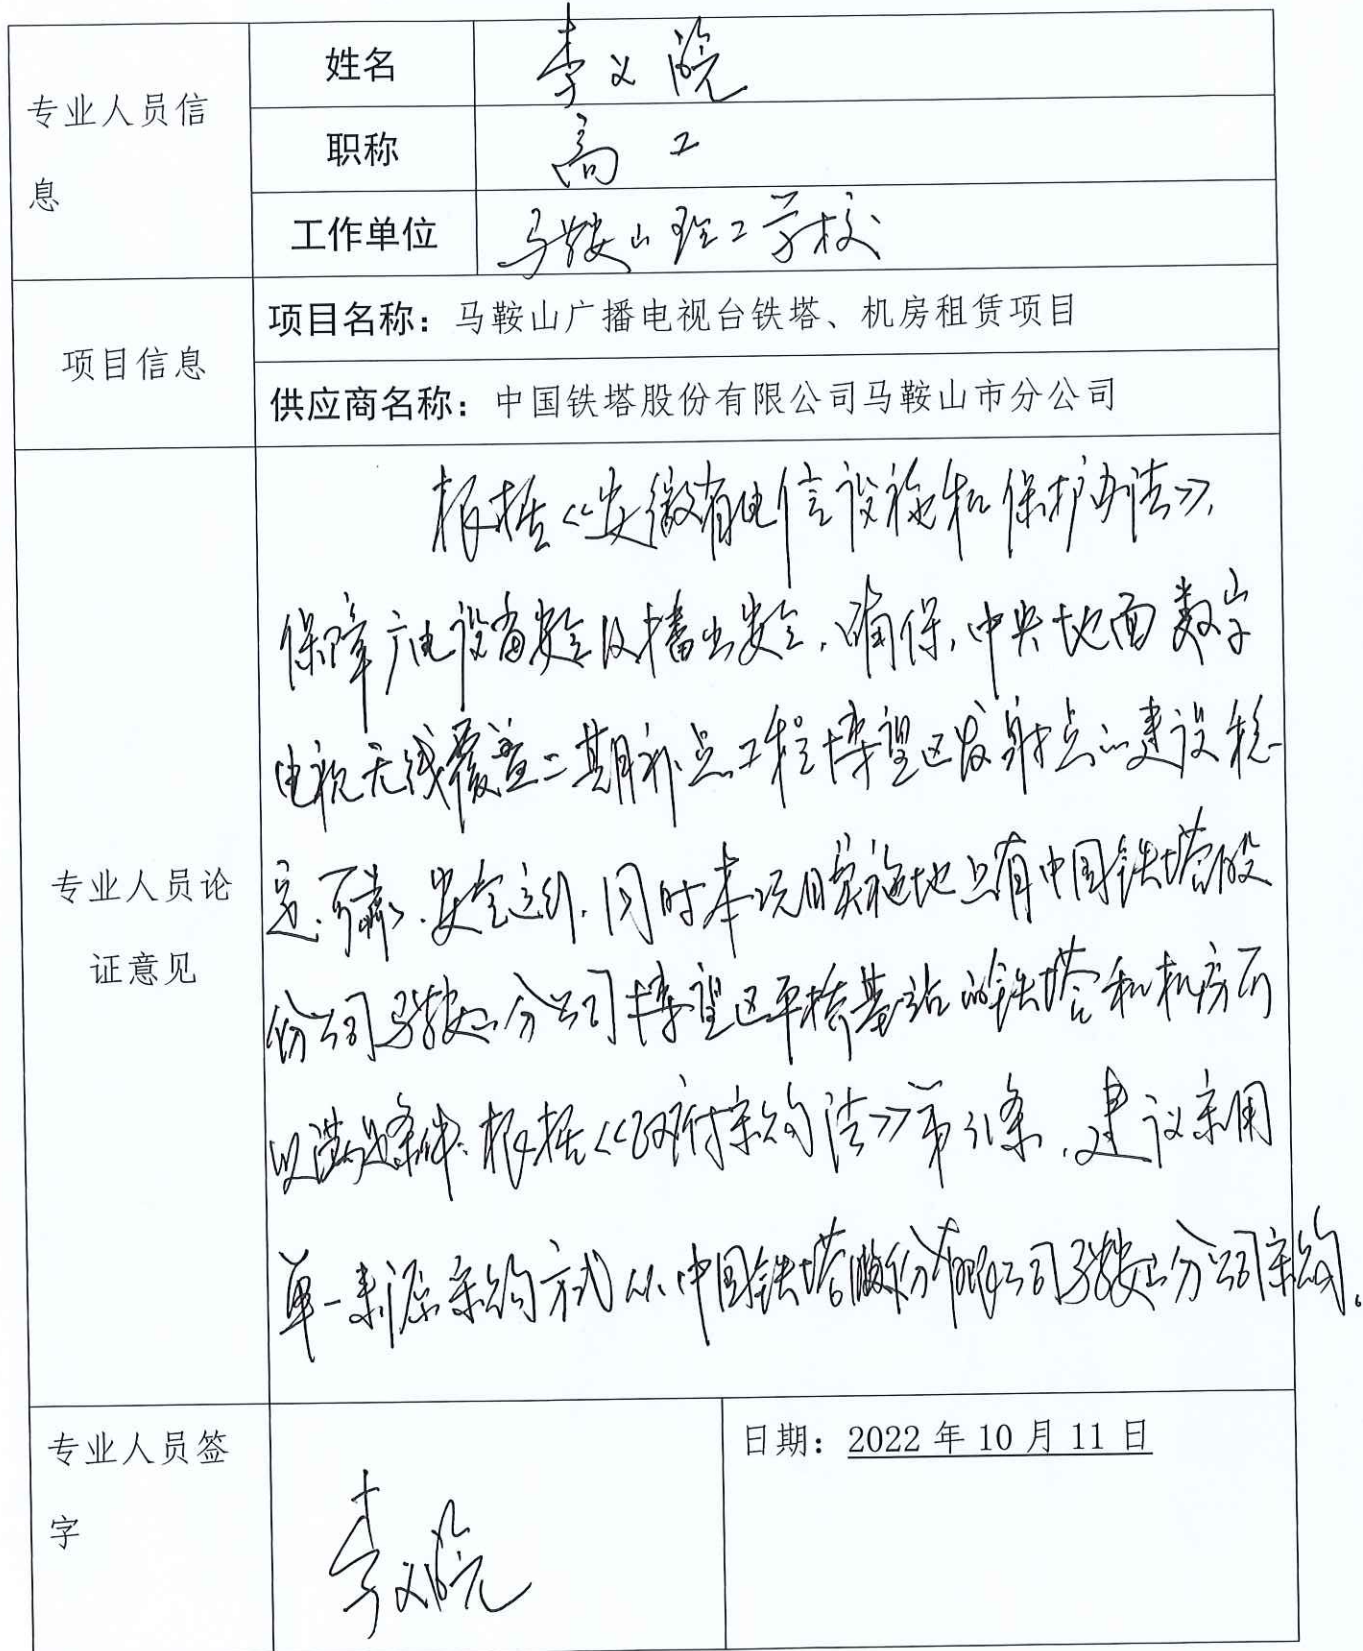 专业人员信息
姓名
李义
职称
高工
工作单位
马鞍山理工学校
项目信息
项目名称：马鞍山广播电视台铁塔、机房租赁项目
供应商名称：中国铁塔股份有限公司马鞍山市分公司
专业人员论证意见
根据《安徽省电信设施和保护办法》，
保障广电设备安全及播出安全，确保，中央地面数字
电视无线覆盖二期补点工程博望区发射点的建设稳
定、可靠、安全运行，同时本项目实施地只有中国铁塔股
份公司马鞍山分公司博望区平桥基站的铁塔和机房可
以满足条件，根据《政府采购法》第31条，建议采用
单一来源采购方式从中国铁塔股份有限公司马鞍山分公司采购。
专业人员签字
李义
日期：2022 年 10 月 11 日